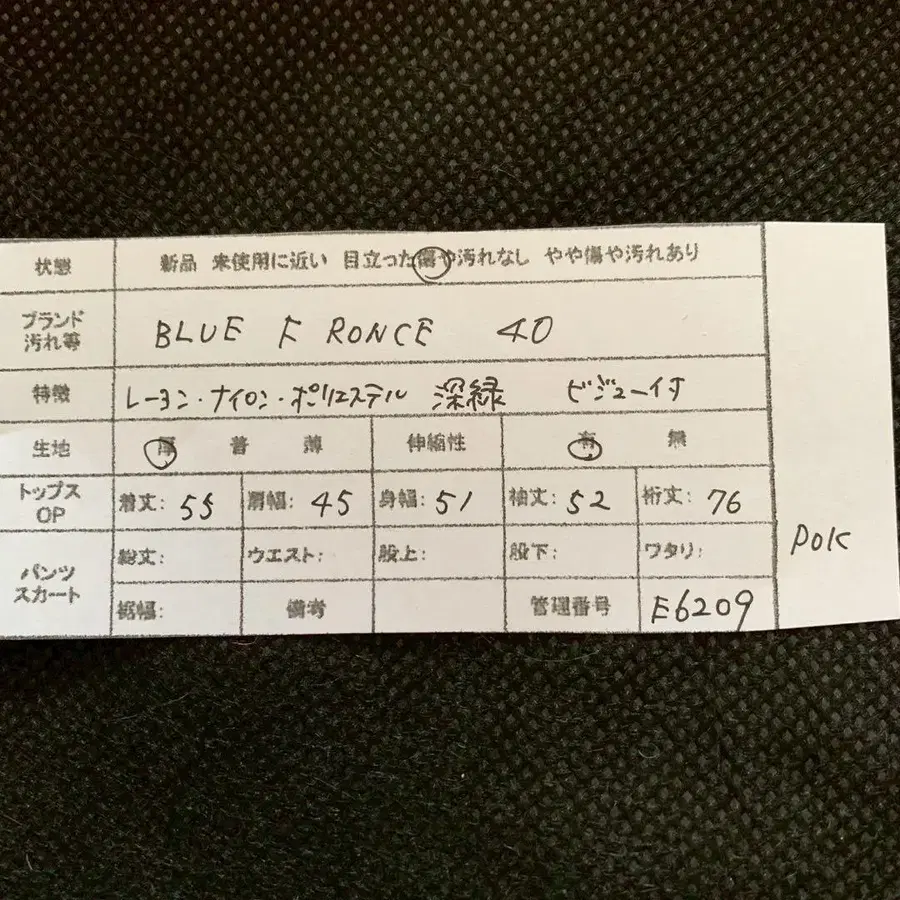 状態 新品 未使用に近い 目立った傷や汚れなし やや傷や汚れあり
ブランド
汚れ等
BLUE F RONCE 40
特徴 レーヨン・ナイロン・ポリエステル 深緑 ビジュー付
生地 厚 普 薄 伸縮性 有 無
トップス
OP
着丈: 55 肩幅: 45 身幅: 51 袖丈: 52 裄丈: 76
パンツ
スカート
総丈: ウエスト: 股上: 股下: ワタリ:
裾幅: 備考 管理番号 E6209
POK